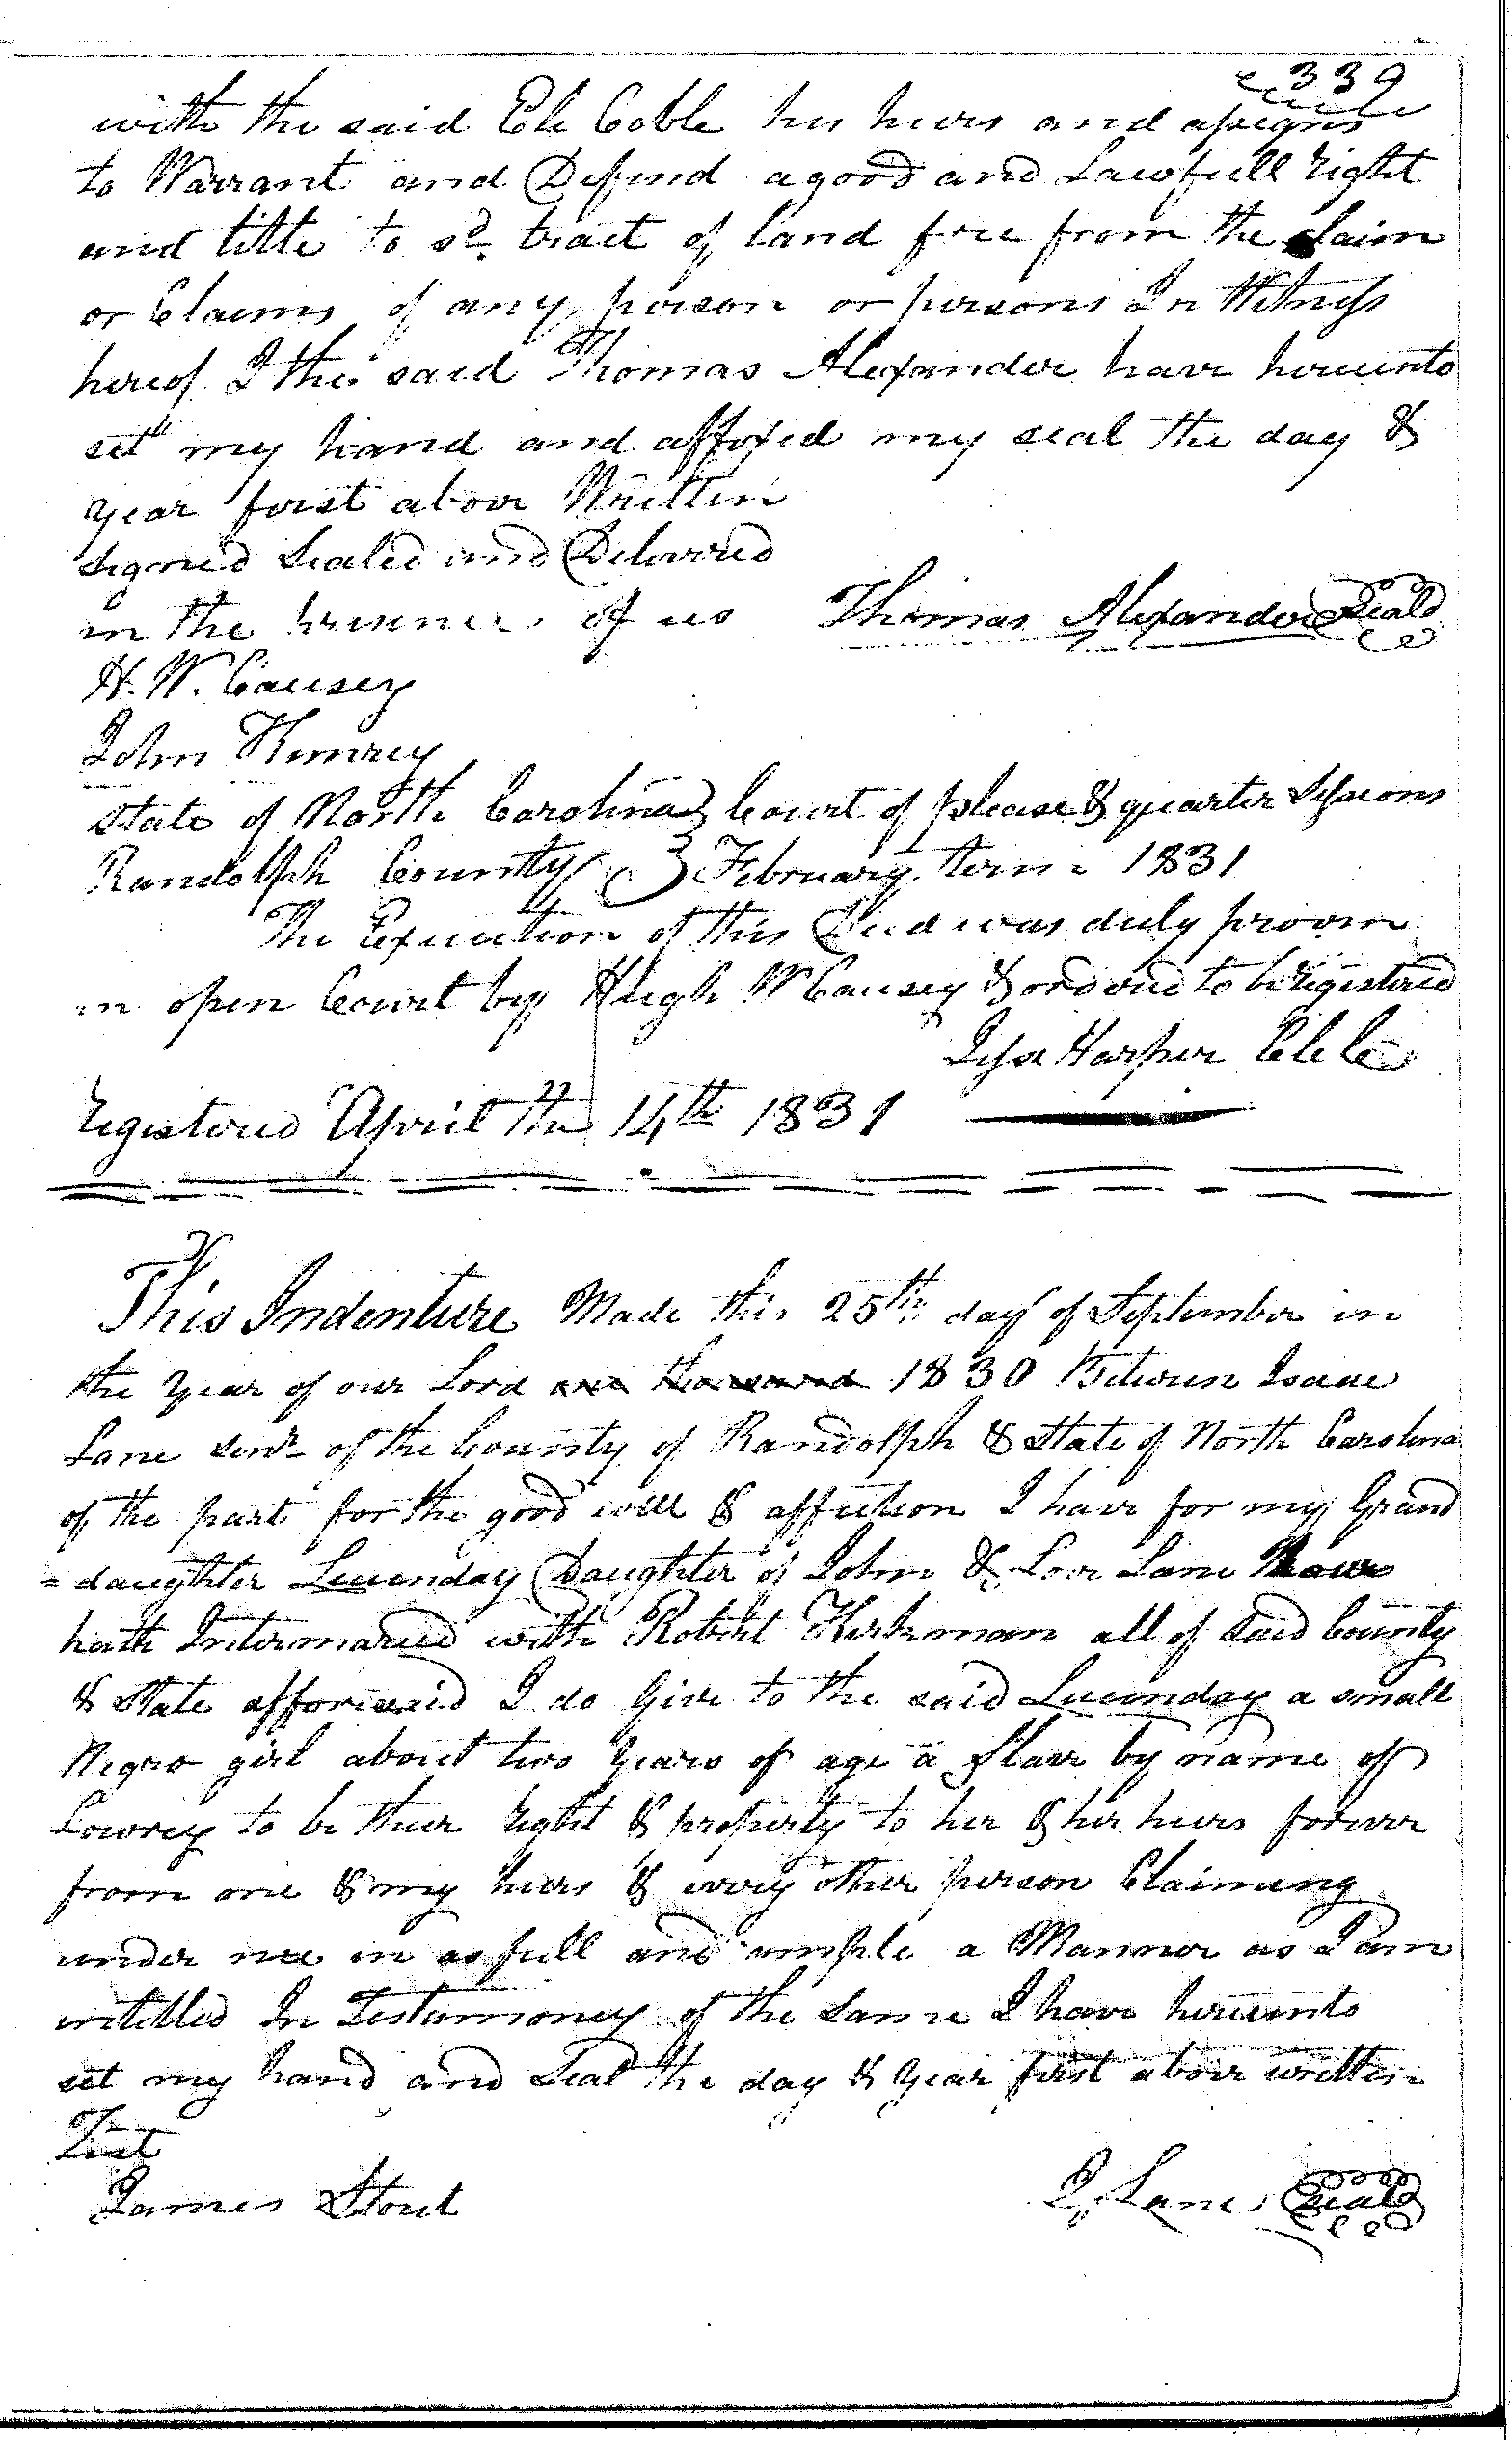 339
with the said Eli Coble his heirs and assigns
to Warrant and Defend a good and Lawfull right
and title to sd. tract of land free from the claim
or Claims of any person or persons In Witness
hereof I the said Thomas Alexander have hereunto
set my hand and affixed my seal the day &
year first above Written
Signed Sealed and Delivered
in the presence of us Thomas Alexander Seal
H. W. Causey
John Kimrey
State of North Carolina Court of please & quarter Sessions
Randolph County February term 1831
The Execution of this Deed was duly proven
in open Court by Hugh W Causey & ordered to be registered
Jesse Harper Clk
registered April the 14th 1831
This Indenture Made this 25th day of September in
the year of our Lord one thousand 1830 Between Isaac
Lane Senr of the County of Randolph & State of North Carolina
of the part for the good will & affection I have for my Grand
= daughter Lucunday Daughter of John & Love Lane
hath Intermaried with Robert Kirkman all of said County
& State afforesaid I do Give to the said Lucunday a small
Negro girl about two years of age a slave by name off
Lowrey to be their right & property to her & her heirs forever
from me & my heirs & every other person Claiming
under me in as full and ample a Manner as I am
intitled In Testamoney of the Same I have hereunto
set my hand and Seal the day & year first above written
Test
James Stout I. Lane Seal